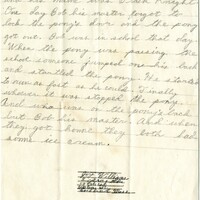 One day Bob his master forgot to
lock the pony's door and the pony
got out. Bob was in school that day.
When the pony was passing the
school someone jumped on his back
and startled the pony. He started
to run as fast as he could. Finally
whoever it was stopped the pony.
And who was on the pony's back
but Bob his master. And when
they got home they both had
some ice cream.